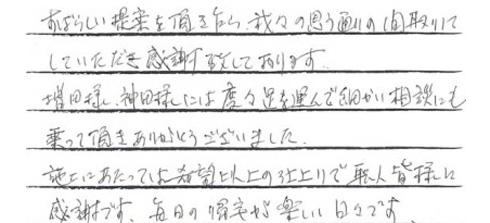 すばらしい提案を頂きながら、我々の思う通りの間取りに
していただき感謝致しております。
増田様、神田様には度々足を運んで細かい相談にも
乗って頂きありがとうございました。
施工にあたっては希望以上の仕上りで職人皆様に
感謝です。毎日の帰宅が楽しい日々です。